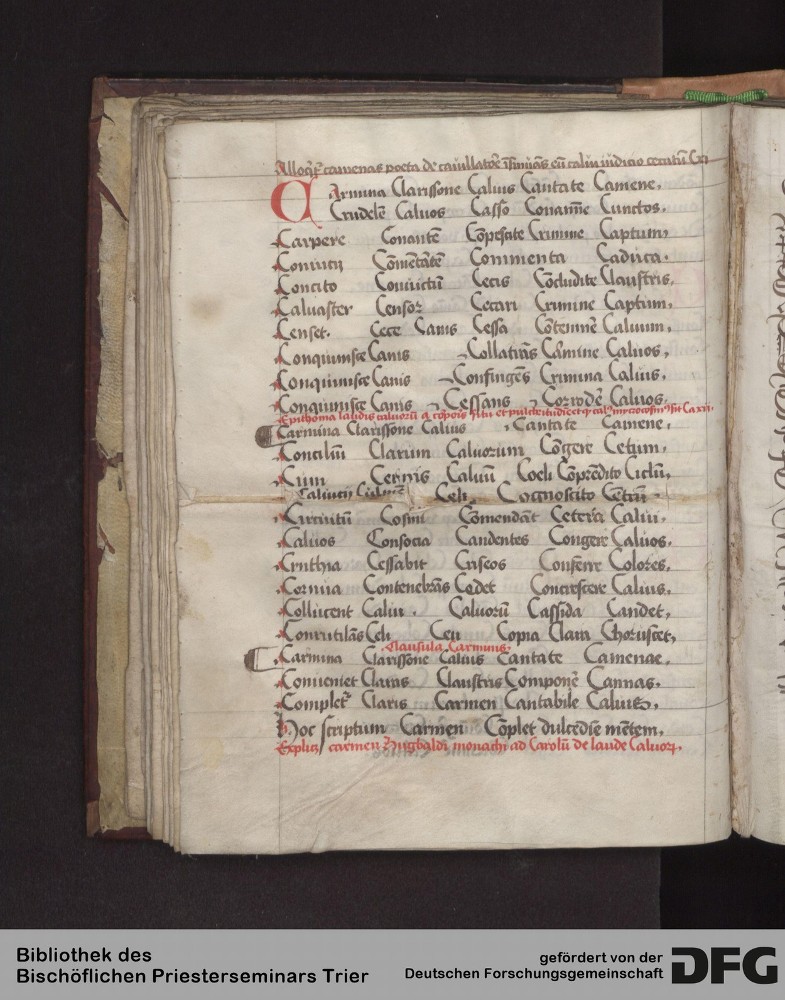 Alloqr̄ camenas poeta de cauillatoē īsimiās eū calui iudicio cecatū
CArmina Clarissone Caluis Cantate Camene.
Crudelē Caluos Casso Conamīe Cunctos.
Carpere Conantē Cōpescite Crimine Captum
Conuicij Cōmētātē Commenta Caduca.
Concito Conuictū Cecis Cōcludite Claustris.
Caluaster Censor Cecari Crimine Captum.
Censet. Cece Canis Cessa Cōtemnē Caluum.
Conquinisce Canis Collatrās Cāmine Caluos.
Conquinisce Canis Confingēs Crimina Caluis.
Conquinisce Canis Cessans Corrodē Caluos.
Epithoma laudis caluorū
Carmina Clarissone Caluis Cantate Camene.
Conciliū Clarum Caluorum Cōgere Cetum.
Cum Cernis Caluū Coeli Cōprēdito Ciclū.
Caluicij Culmē Celi. Cognoscito Cētrū
Circuitū Cosmi Cōmendāt Cetera Calui.
Caluos Consocia Candentes Congere Caluos.
Cynthia Cessabit Criseos Conferre Colores.
Cornua Contenebrās Cedet Concrescere Caluis.
Collucent Calui. Caluorū Cassida Candet.
Conrutilās Celi Ceu Copia Clara Choruscet,
Clausula Carminis.
Carmina Clarissone Caluis Cantate Camenae.
Conueniet Claras Claustris Componē Cannas.
Complet Claris Carmen Cantabile Caluis
Hoc scriptum Carmen Cōplet dulcedīe mētem.
Explicit carmen Hugbaldi monachi ad Carolū de laude Caluorꝝ.
Bibliothek des
Bischöflichen Priesterseminars Trier
gefördert von der
Deutschen Forschungsgemeinschaft
DFG